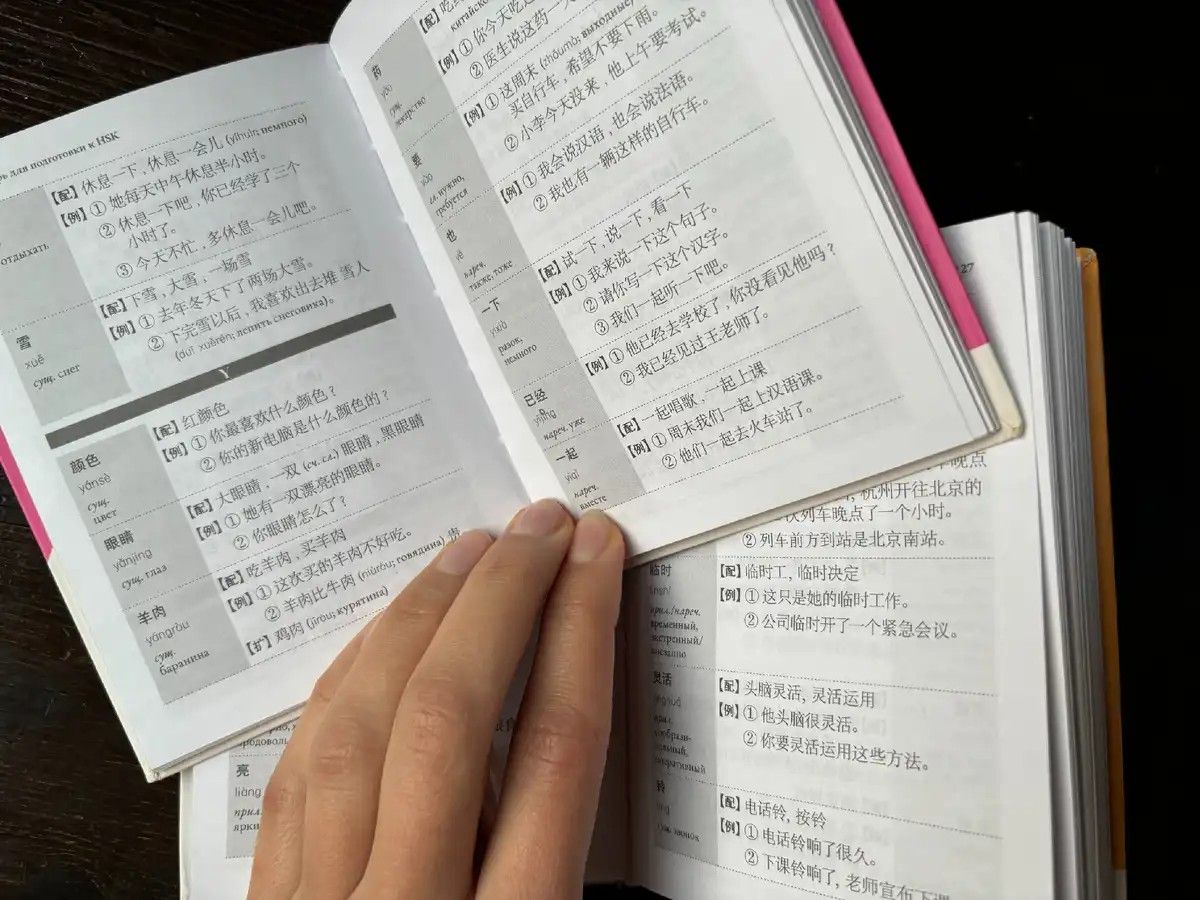 для подготовки к HSK
отдыхать
【配】休息一下，休息一会儿 (yíhuìr; немного)
【例】① 她每天中午休息半小时。
② 休息一下吧，你已经学了三个
小时了。
③ 今天不忙，多休息一会儿吧。
雪
xuě
сущ. снег
【配】下雪，大雪，一场雪
【例】① 去年冬天下了两场大雪。
② 下完雪以后，我喜欢出去堆雪人
(duī xuěrén; лепить снеговика)。
Y
颜色
yánsè
сущ.
цвет
【配】红颜色
【例】① 你最喜欢什么颜色？
② 你的新电脑是什么颜色的？
眼睛
yǎnjing
сущ. глаз
【配】大眼睛，一双 (сч. сл.) 眼睛，黑眼睛
【例】① 她有一双漂亮的眼睛。
② 你眼睛怎么了？
羊肉
yángròu
сущ.
баранина
【配】吃羊肉，买羊肉
【例】① 这次买的羊肉不好吃。
② 羊肉比牛肉 (niúròu; говядина)
【扩】鸡肉 (jīròu; курятина)
药
yào
сущ.
лекарство
【配】
【例】① 你今天吃
② 医生说这药一天
要
yào
гл. нужно,
требуется
【例】① 这周末 (zhōumò; выходные)
买自行车，希望不要下雨。
② 小李今天没来，他上午要考试。
也
yě
нареч.
также, тоже
【例】① 我会说汉语，也会说法语。
② 我也有一辆这样的自行车。
一下
yíxià
разок,
немного
【配】试一下，说一下，看一下
【例】① 我来说一下这个句子。
② 请你写一下这个汉字。
③ 我们一起听一下吧。
已经
yǐjīng
нареч. уже
【例】① 他已经去学校了，你没看见他吗？
② 我已经见过王老师了。
一起
yìqǐ
нареч.
вместе
【配】一起唱歌，一起上课
【例】① 周末我们一起上汉语课。
② 他们一起去火车站了。
27
晚点
杭州开往北京的
次列车晚点了一个小时。
② 列车前方到站是北京南站。
临时
línshí
прил./нареч.
временный,
экстренный/
внезапно
【配】临时工, 临时决定
【例】① 这只是她的临时工作。
② 公司临时开了一个紧急会议。
灵活
прил.
【配】头脑灵活, 灵活运用
【例】① 他头脑很灵活。
② 你要灵活运用这些方法。
铃
líng
сущ. звонок
【配】电话铃, 按铃
【例】① 电话铃响了很久。
② 下课铃响了, 老师宣布下课
亮
liàng
прил.